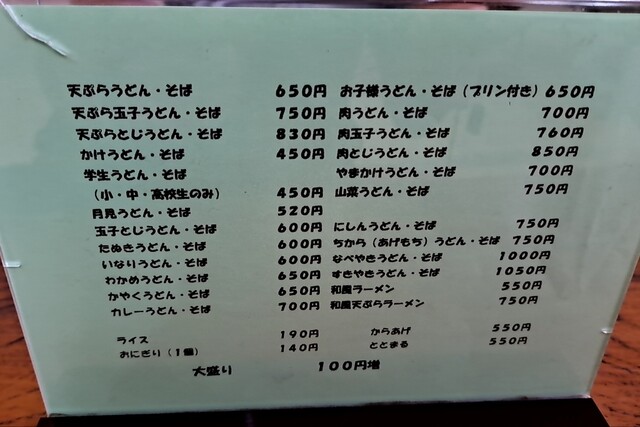 天ぷらうどん・そば 650円
天ぷら玉子うどん・そば 750円
天ぷらとじうどん・そば 830円
かけうどん・そば 450円
学生うどん・そば
（小・中・高校生のみ） 450円
月見うどん・そば 520円
玉子とじうどん・そば 600円
たぬきうどん・そば 600円
いなりうどん・そば 600円
わかめうどん・そば 650円
かやくうどん・そば 650円
カレーうどん・そば 700円
お子様うどん・そば（プリン付き） 650円
肉うどん・そば 700円
肉玉子うどん・そば 760円
肉とじうどん・そば 850円
やまかけうどん・そば 700円
山菜うどん・そば 750円
にしんうどん・そば 750円
ちから（あげもち）うどん・そば 750円
なべやきうどん・そば 1000円
すきやきうどん・そば 1050円
和風ラーメン 550円
和風天ぷらラーメン 750円
ライス 190円
おにぎり（1個） 140円
からあげ 550円
ととまる 550円
大盛り 100円増